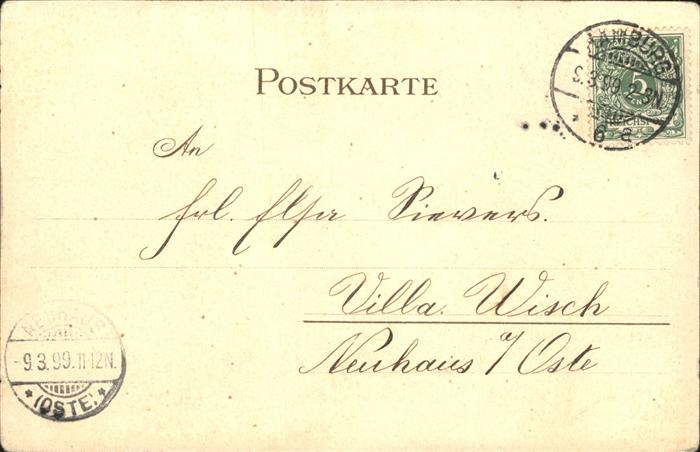 HAMBURG
9.3.99. 2-3N
6 a
5
POSTKARTE
An
Frl. Elsa Sievers.
Villa Wisch
Neuhaus a/ Oste
NEUHAUS
-9.3.99.11-12N.
* (OSTE) *